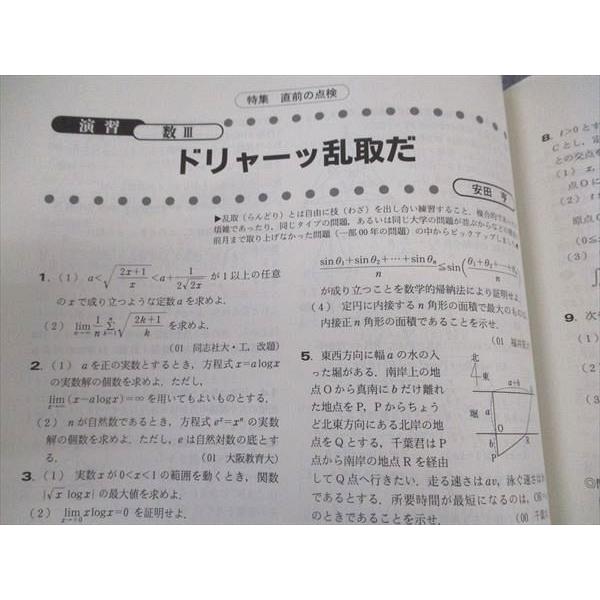 特集 直前の点検
演習 数Ⅲ
ドリャーッ乱取だ
安田 亨
▶乱取(らんどり)とは自由に技(わざ)を出し合い練習すること．複合的であっ
煩雑であったり，同じタイプの問題，あるいは同じ大学の問題が並ぶからなどの
前月まで取り上げなかった問題(一部00年の問題)の中からピックアップしまし
1．(1) a<√((2x+1)/x)<a+1/(2√(2x)) が1以上の任意
のxで成り立つような定数aを求めよ．
(2) lim_{n→∞} (1/n) Σ_{k=1}^{n} √((2k+1)/k) を求めよ．
(01 同志社大・工，改題)
2．(1) aを正の実数とするとき，方程式x=alogx
の実数解の個数を求めよ．ただし，
lim_{x→∞}(x−alogx)=∞を用いてもよいものとする．
(2) nが自然数であるとき，方程式e^x=x^nの実数
解の個数を求めよ．ただし，eは自然対数の底とす
る． (01 大阪教育大)
3．(1) 実数xが0<x<1の範囲を動くとき，関数
|√x logx|の最大値を求めよ．
(2) lim_{x→+0} xlogx=0を証明せよ．
(sinθ₁+sinθ₂+⋯+sinθₙ)/n ≦ sin((θ₁+θ₂+⋯+θₙ)/n)
が成り立つことを数学的帰納法により証明せよ．
(4) 定円に内接するn角形の面積で最大のもの
内接正n角形の面積であることを示せ．
(01 福井
5．東西方向に幅aの水の入
った堀がある．南岸上の地
点Oから真南にbだけ離れ
た地点をP，Pからちょう
ど北東方向にある北岸の地
点をQとする．千葉君はP
点から南岸の地点Rを経由
してQ点へ行きたい．走る速さはav，泳ぐ速さは
であるとする．所要時間が最短になるのは，OR=
のときであることを示せ． (00 千葉
北
東
a+b
堀
a
b
P
R
8．t>0とす
Cとし，定
との交点を
(1)
点Oに
(2)
原点
(0≦
(3)
9．次
(1)
(2)
(3)